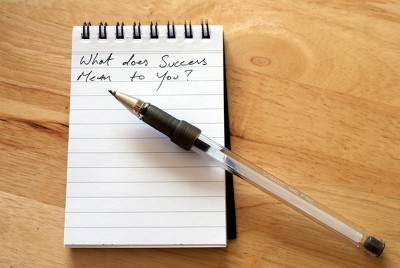 What does Success
Mean to You?